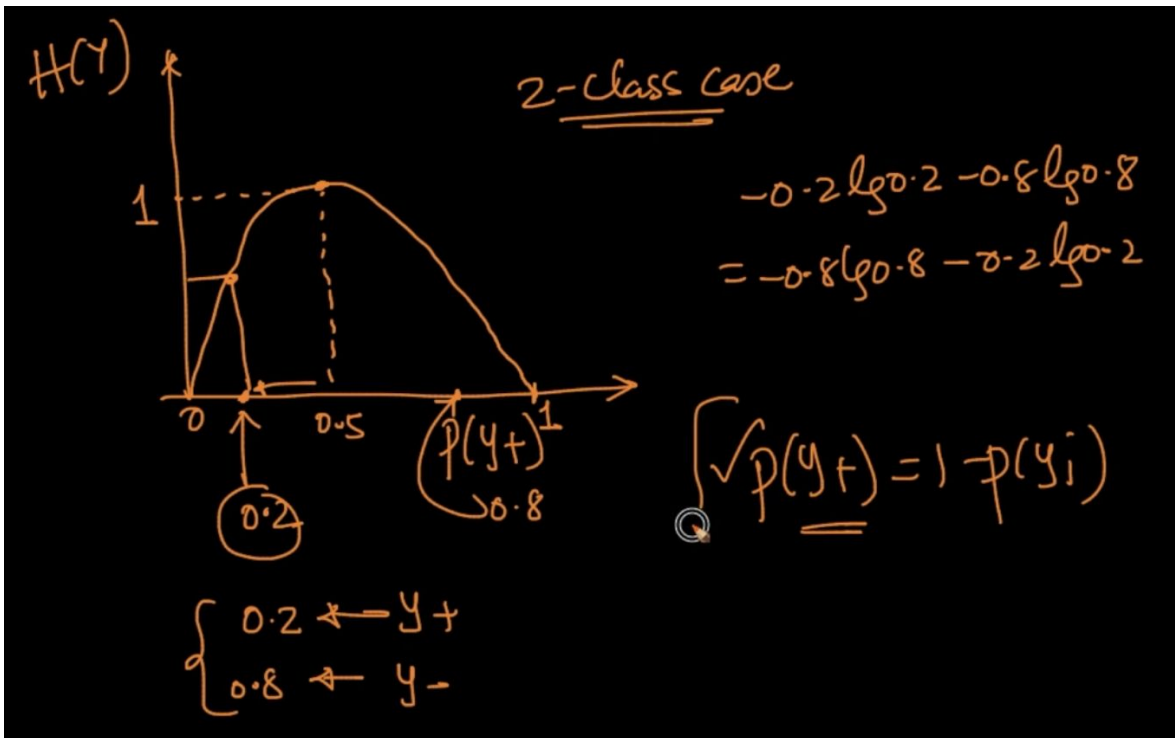 H(Y)
2-class case
1
-0.2 lg0.2 -0.8 lg0.8
= -0.8 lg0.8 - 0.2 lg0.2
0 0.5 P(y+) 1
0.2
0.8
✓p(y+) = 1 - p(yi)
0.2 ← y+
0.8 ← y-